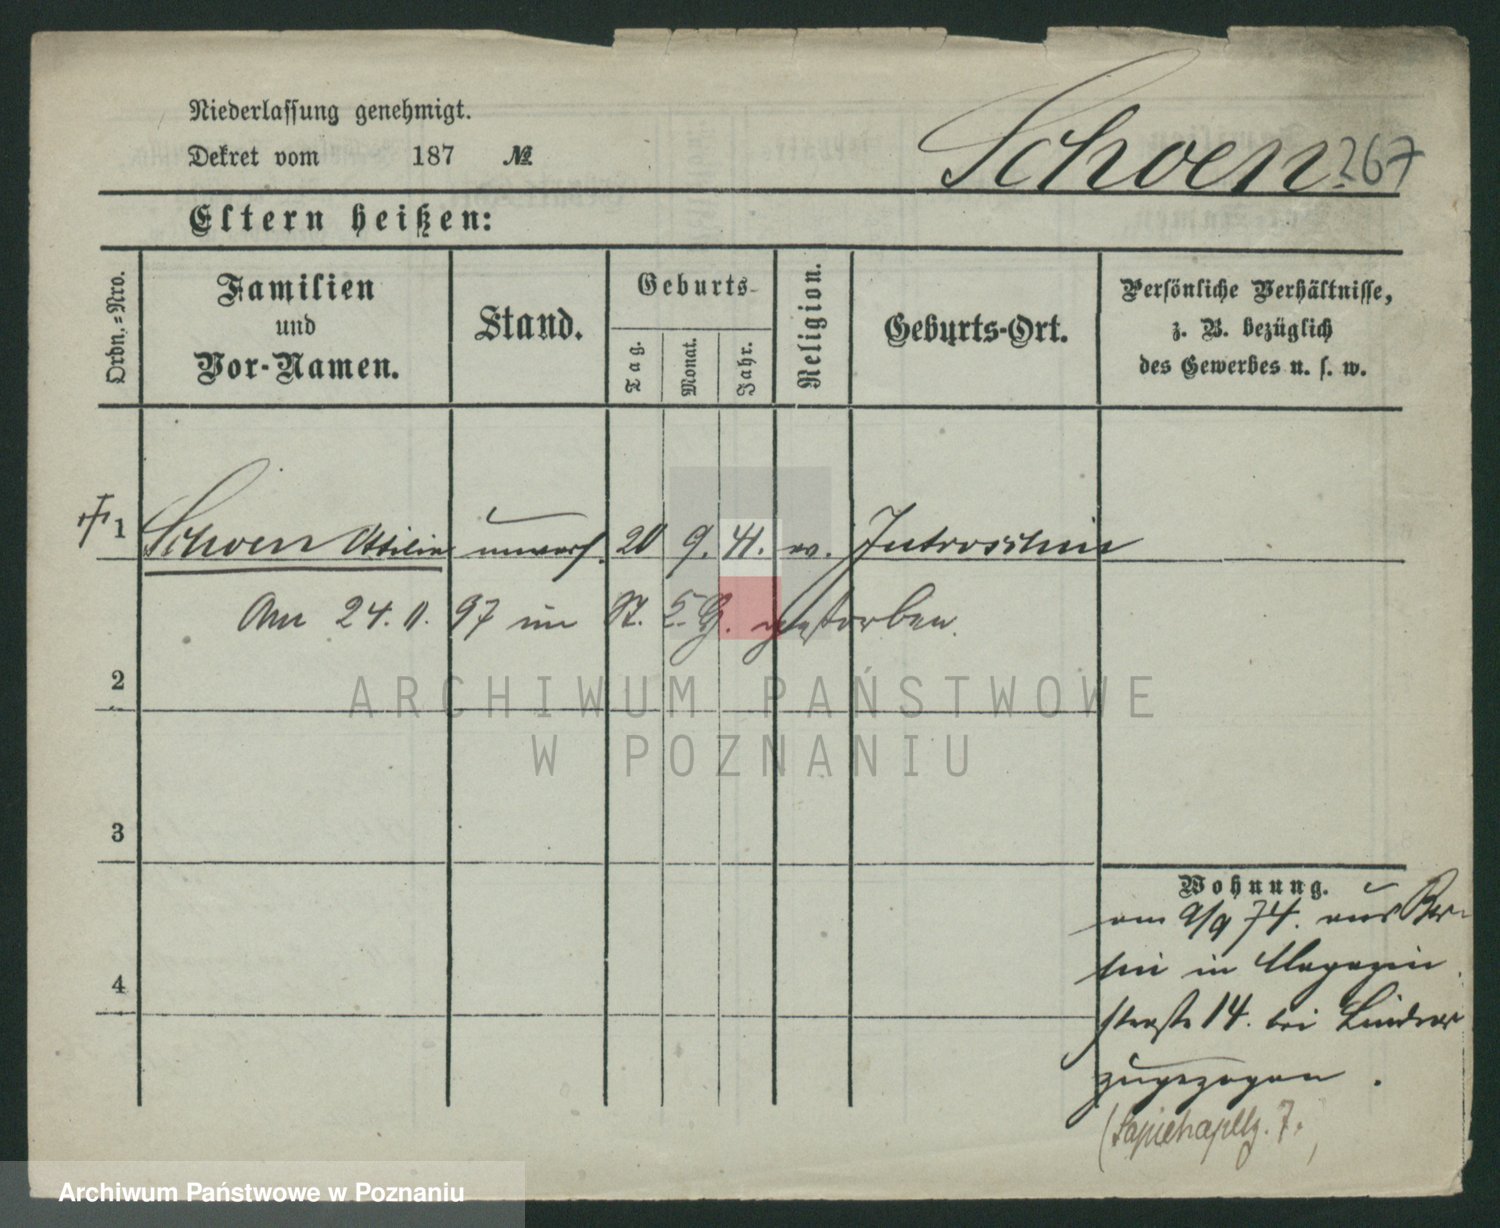 Niederlassung genehmigt.
Dekret vom 187 №
Schoen.
267
Eltern heißen:
Ordn.-Nro.
Familien
und
Vor-Namen.
Stand.
Geburts-
Tag.
Monat.
Jahr.
Religion.
Geburts-Ort.
Persönliche Verhältnisse,
z. B. bezüglich
des Gewerbes u. s. w.
1 Schoen Ottilie unverh. 20 9. 41. ev. Jutroschin
Am 24. 11. 97 im St. L. G. gestorben.
2
3
4
Wohnung.
am 9/9 74. aus Ber-
lin in Magazin
straße 14. bei Lindner
zugezogen.
(Sapiehapltz. 7.)
ARCHIWUM PAŃSTWOWE
W POZNANIU
Archiwum Państwowe w Poznaniu